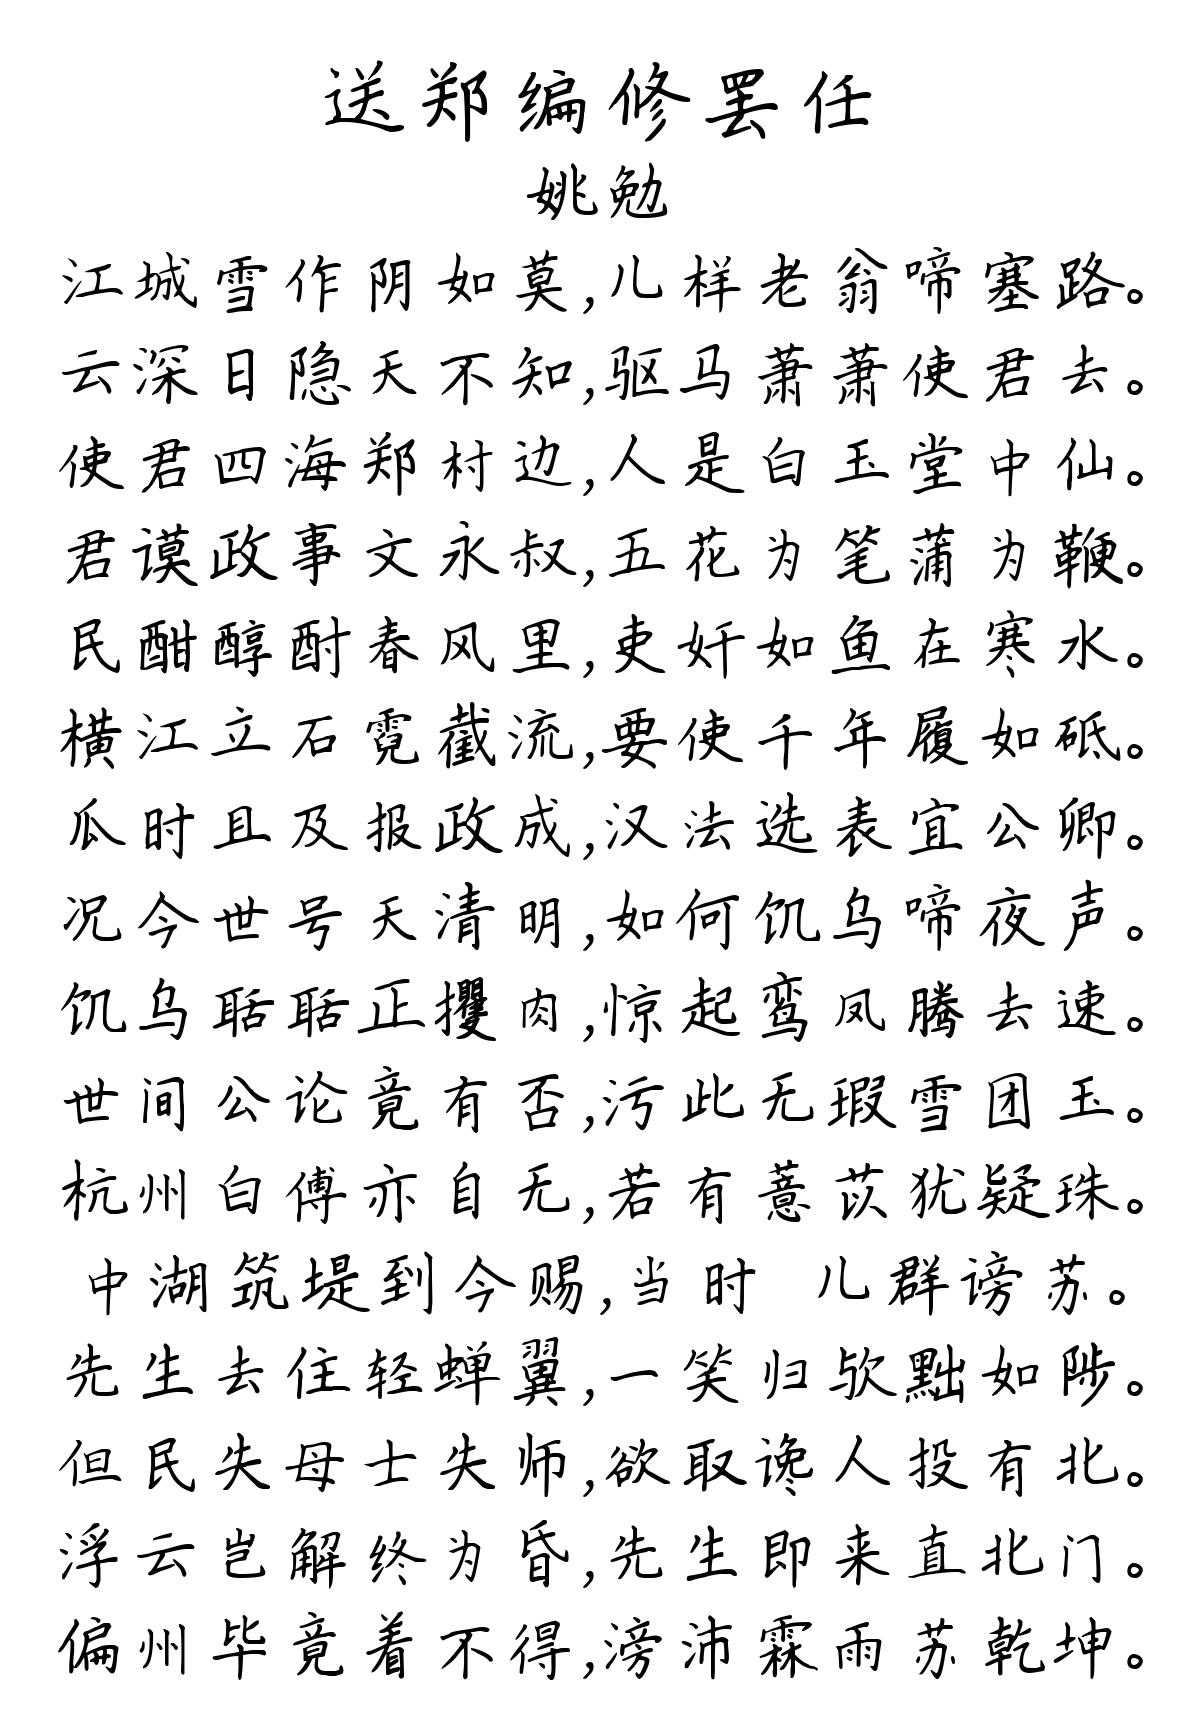 送郑编修罢任
姚勉
江城雪作阴如莫,儿样老翁啼塞路。
云深日隐天不知,驱马萧萧使君去。
使君四海郑村边,人是白玉堂中仙。
君谟政事文永叔,五花为笔蒲为鞭。
民酣醇酎春风里,吏奸如鱼在寒水。
横江立石霓截流,要使千年履如砥。
瓜时且及报政成,汉法选表宜公卿。
况今世号天清明,如何饥乌啼夜声。
饥乌聒聒正攫肉,惊起鸾凤腾去速。
世间公论竟有否,污此无瑕雪团玉。
杭州白傅亦自无,若有薏苡犹疑珠。
中湖筑堤到今赐,当时 儿群谤苏。
先生去住轻蝉翼,一笑归欤黜如陟。
但民失母士失师,欲取谗人投有北。
浮云岂解终为昏,先生即来直北门。
偏州毕竟着不得,滂沛霖雨苏乾坤。